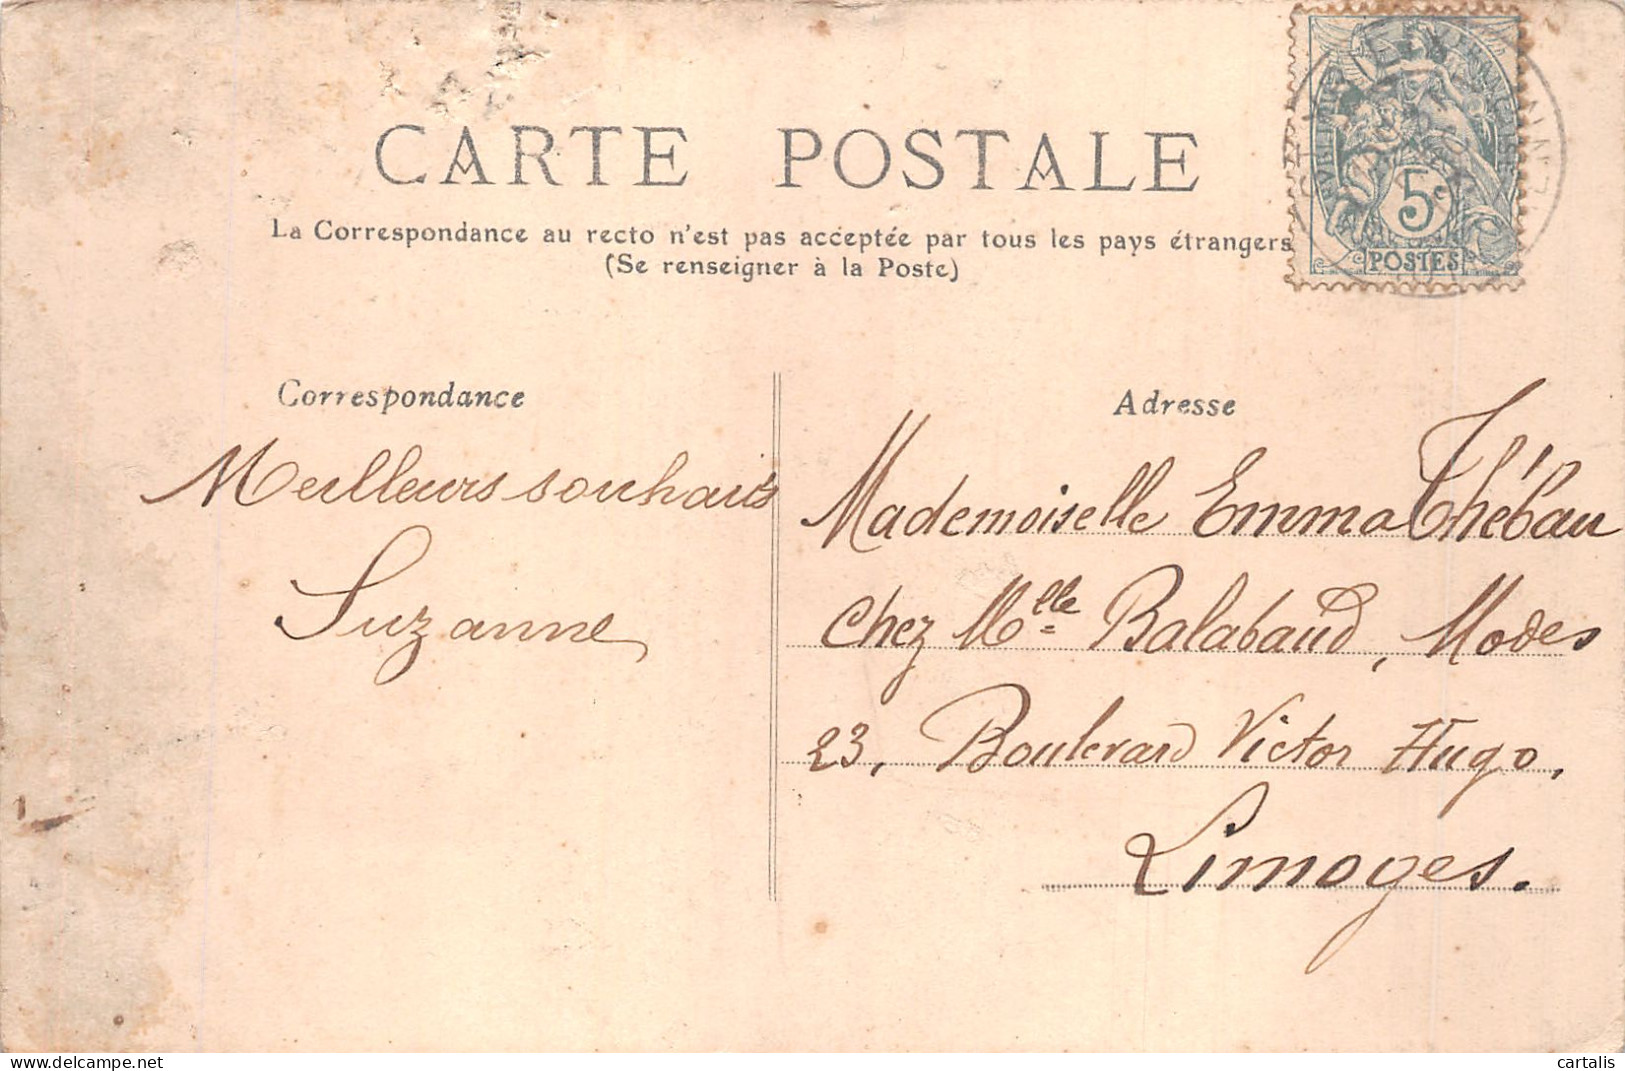 CARTE POSTALE
La Correspondance au recto n'est pas acceptée par tous les pays étrangers
(Se renseigner à la Poste)
5c
POSTES
Correspondance
Meilleurs souhaits
Suzanne
Adresse
Mademoiselle Emma Thébau
Chez Mlle Balabaud, Modes
23, Boulevard Victor Hugo,
Limoges.
delcampe.net
cartalis